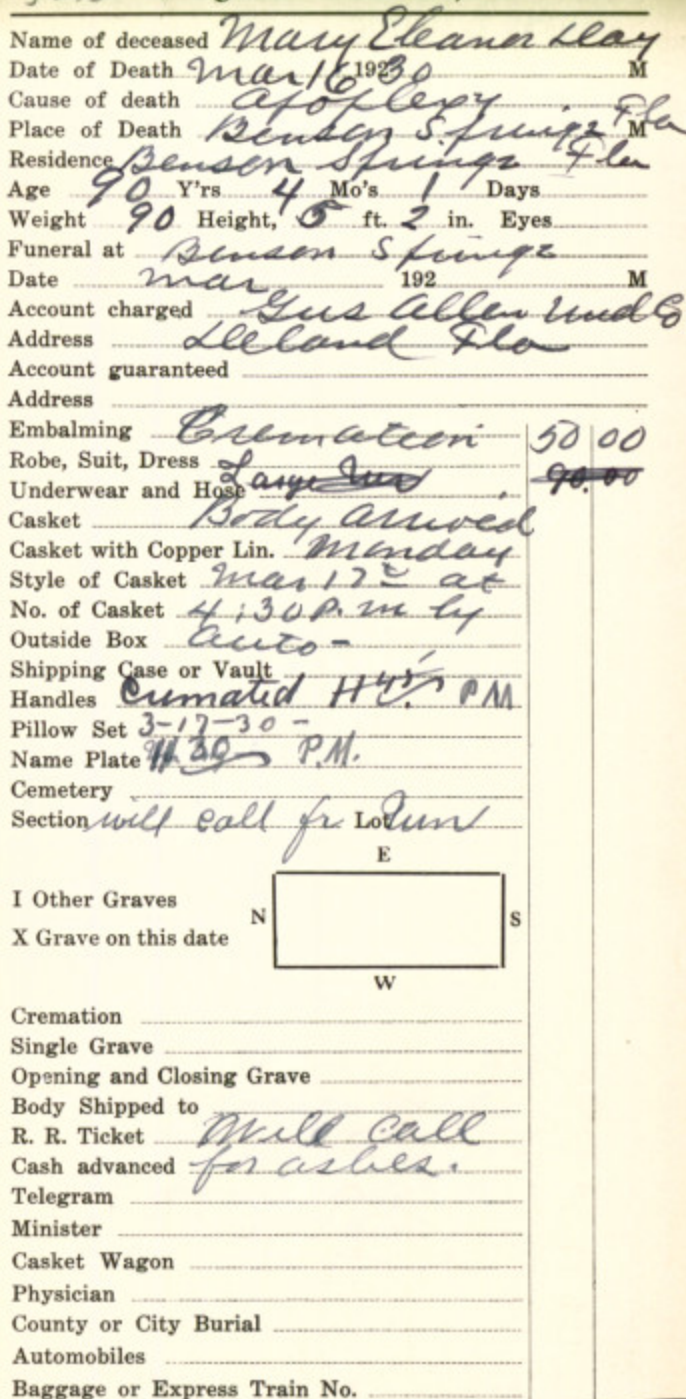 Name of deceased Mary Eleanor Day
Date of Death Mar 16 1930 M
Cause of death apoplexy
Place of Death Benson Springs Fla M
Residence Benson Springs Fla
Age 90 Y'rs 4 Mo's 1 Days
Weight 90 Height, 5 ft. 2 in. Eyes
Funeral at Benson Springs
Date mar 192 M
Account charged Gus Allen Und Co
Address Deland Fla
Account guaranteed
Address
Embalming Cremation 50 00
Robe, Suit, Dress
Underwear and Hose Large Urn 90.00
Casket Body arrived
Casket with Copper Lin. Monday
Style of Casket Mar 17 at
No. of Casket 4:30 P.m by
Outside Box auto-
Shipping Case or Vault
Handles Cremated PM
Pillow Set 3-17-30-
Name Plate P.M.
Cemetery
Section will call fr Lot Urn
E
I Other Graves
N S
X Grave on this date
W
Cremation
Single Grave
Opening and Closing Grave
Body Shipped to
R. R. Ticket Will call
Cash advanced for ashes.
Telegram
Minister
Casket Wagon
Physician
County or City Burial
Automobiles
Baggage or Express Train No.